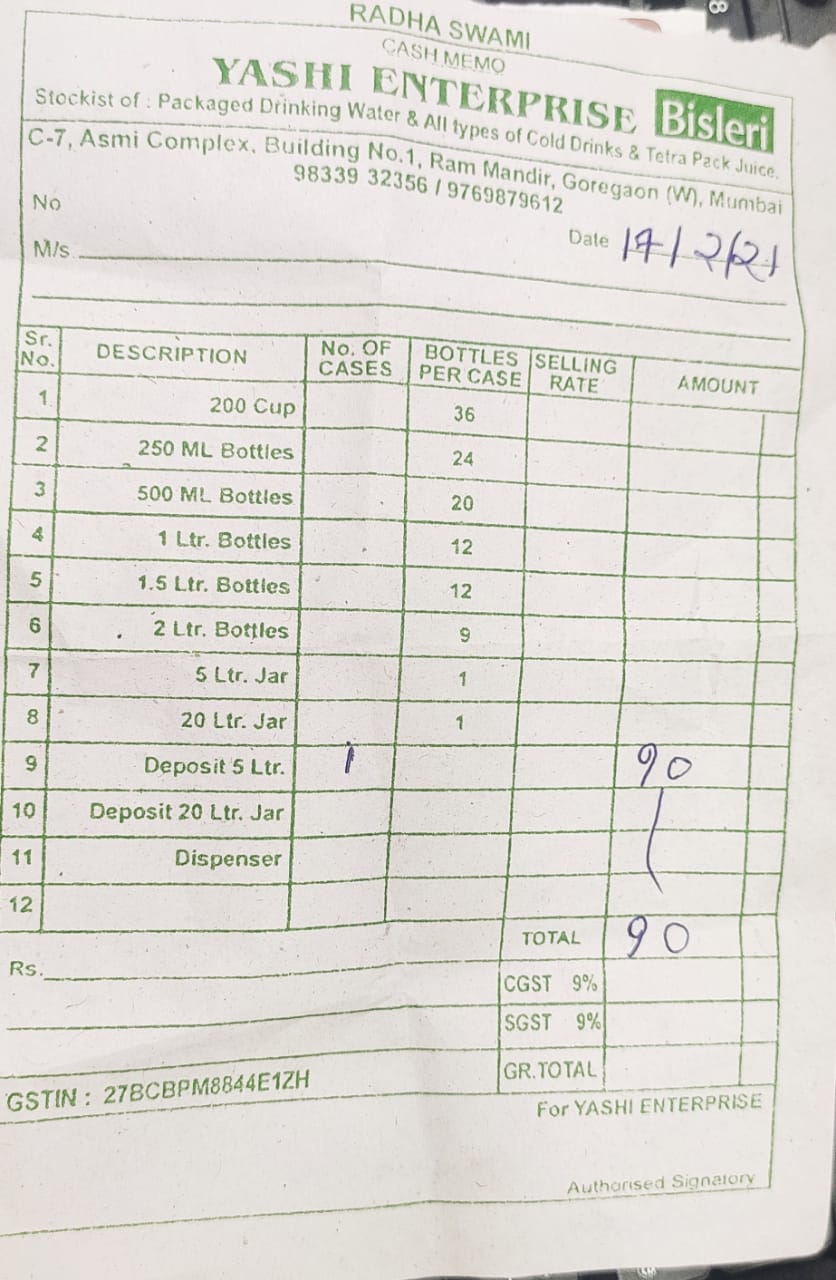 RADHA SWAMI
CASH MEMO
YASHI ENTERPRISE Bisleri
Stockist of : Packaged Drinking Water & All types of Cold Drinks & Tetra Pack Juice.
C-7, Asmi Complex, Building No.1, Ram Mandir, Goregaon (W), Mumbai
98339 32356 / 9769879612
No
Date 17/2/21
M/s.
Sr. No. DESCRIPTION No. OF CASES BOTTLES PER CASE SELLING RATE AMOUNT
1 200 Cup 36
2 250 ML Bottles 24
3 500 ML Bottles 20
4 1 Ltr. Bottles 12
5 1.5 Ltr. Bottles 12
6 2 Ltr. Bottles 9
7 5 Ltr. Jar 1
8 20 Ltr. Jar 1
9 Deposit 5 Ltr. 1 90
10 Deposit 20 Ltr. Jar
11 Dispenser
12
TOTAL 90
Rs.
CGST 9%
SGST 9%
GR.TOTAL
GSTIN : 27BCBPM8844E1ZH
For YASHI ENTERPRISE
Authorised Signatory